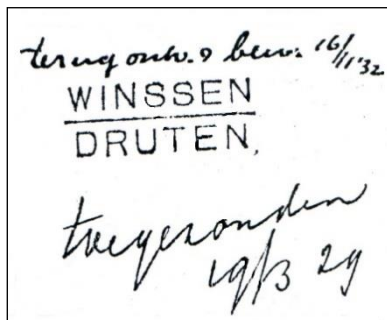 terug ontv. 9 bew. 16/11'32
WINSSEN
DRUTEN,
toegezonden
19/3 29